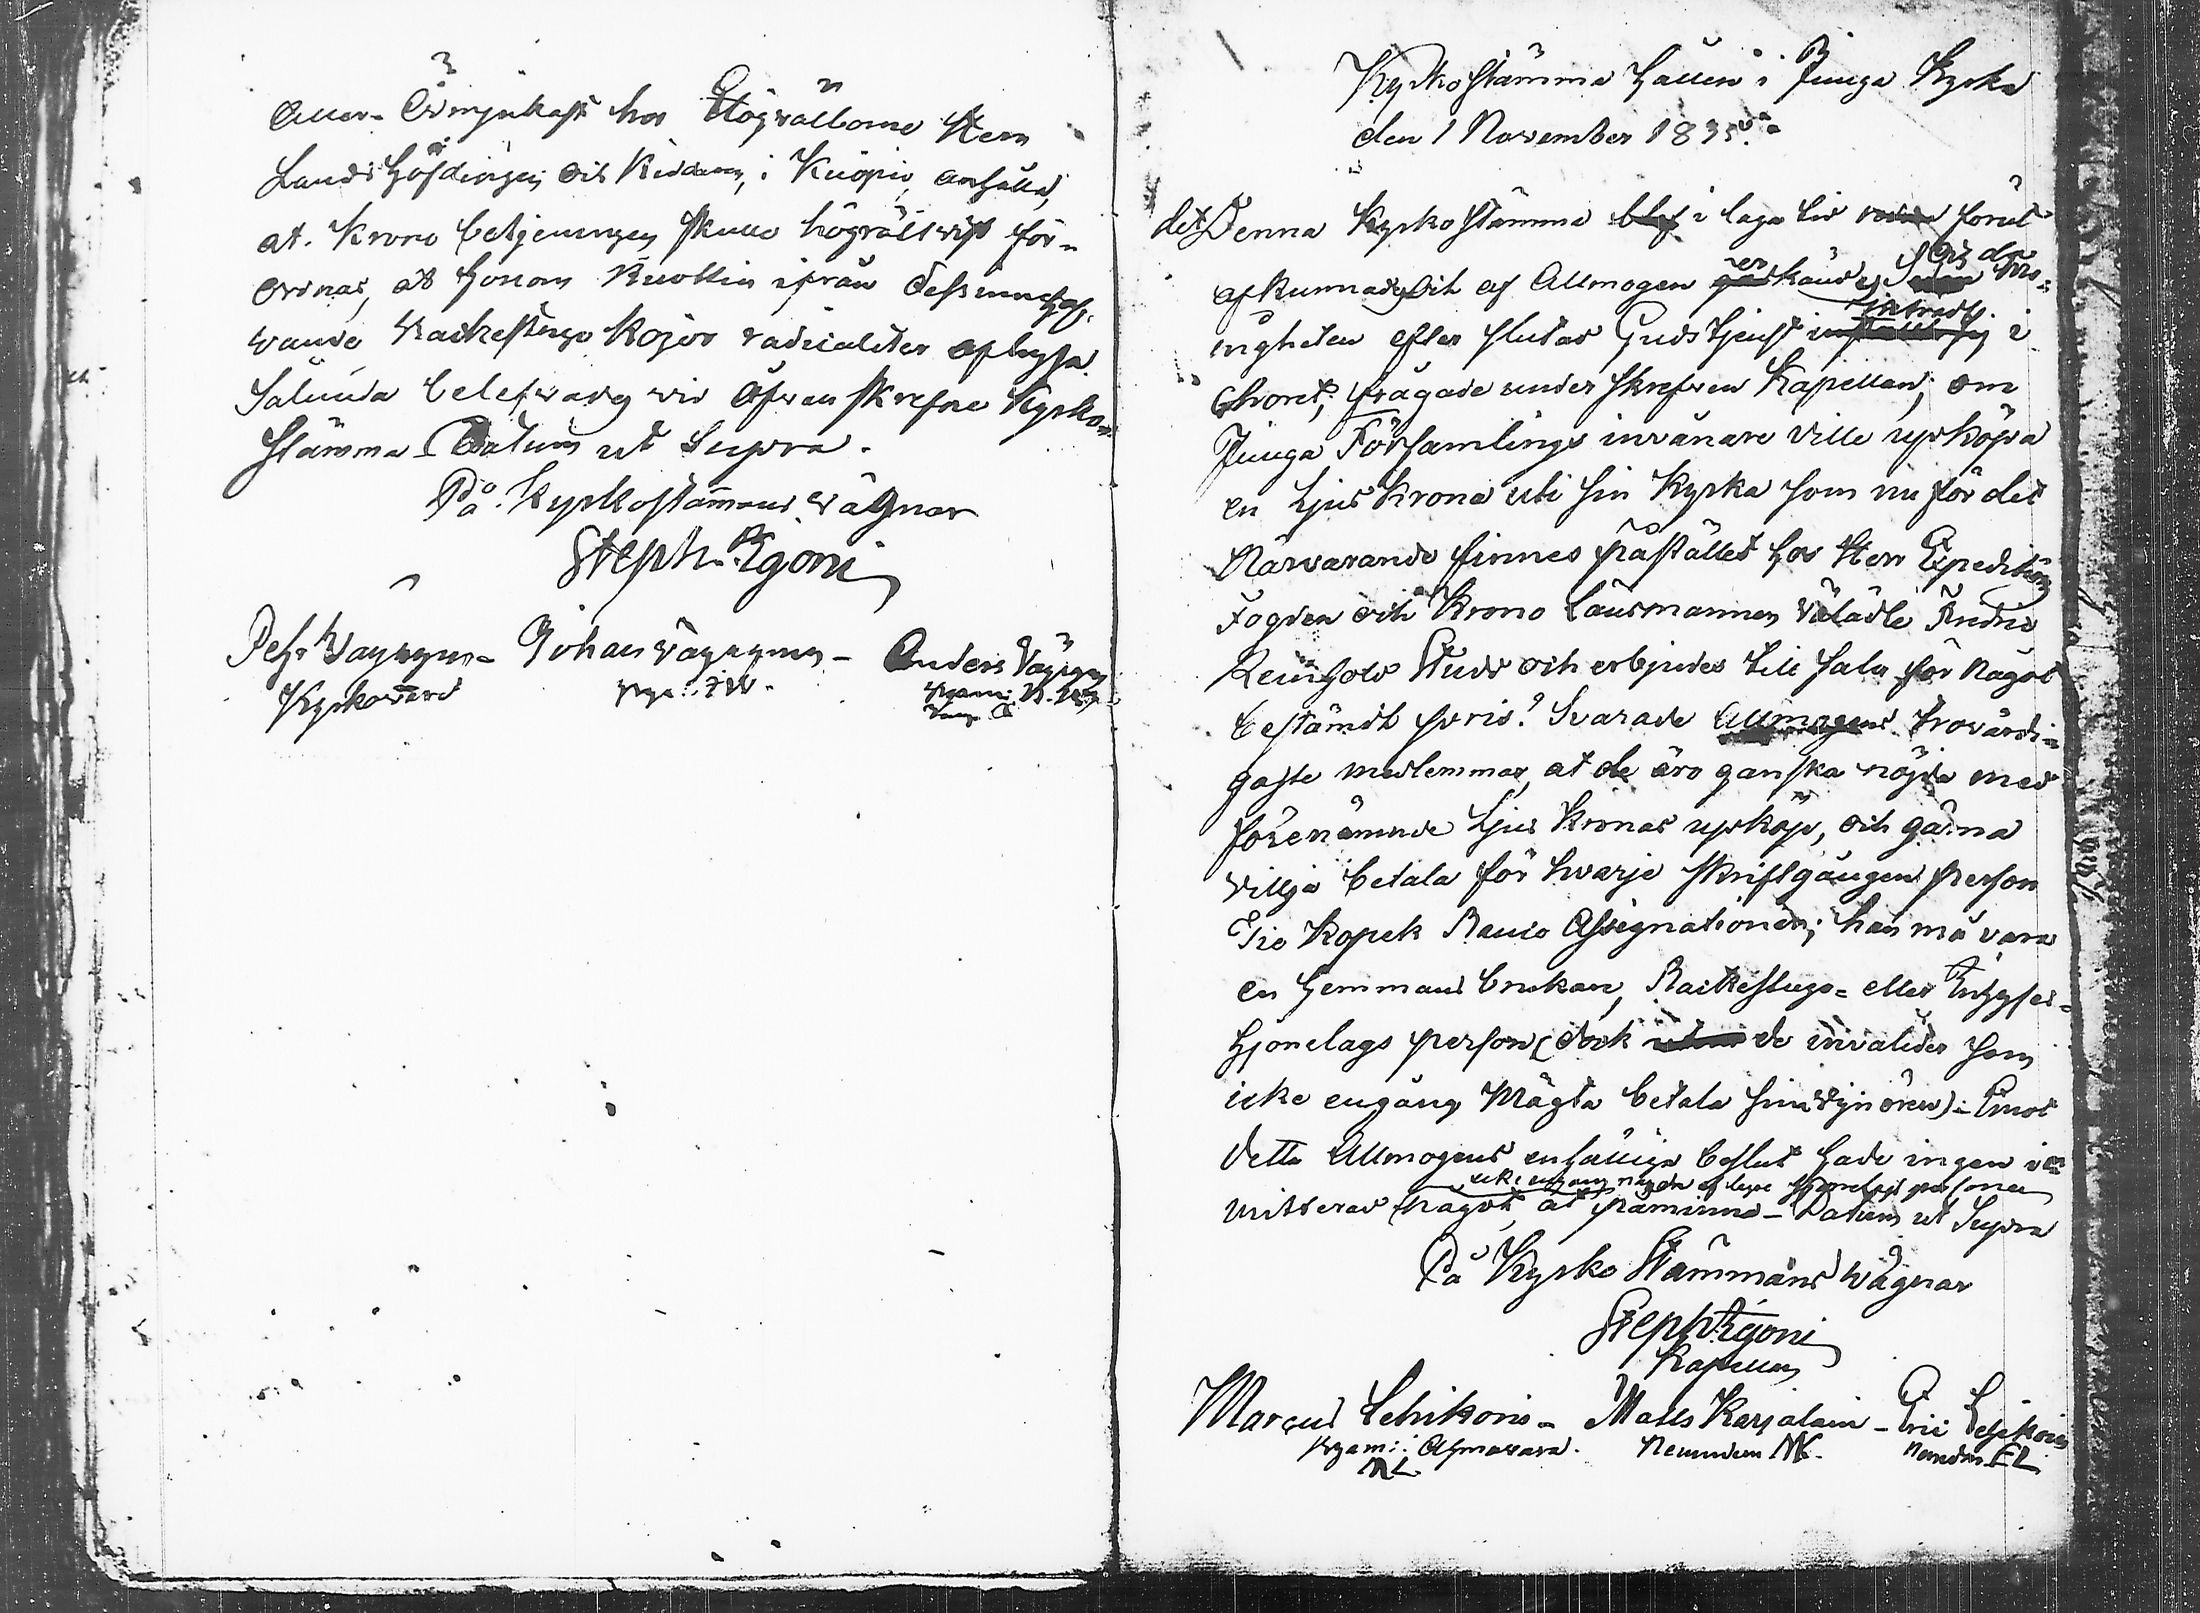 Aller-Ödmjukast hos Högvälborne Herr
Lands Höfdingen och Riddaren, i Kuopio, anhålla,
at Krono betjeningen skulle högrättvist för-
ordnas, at honom Kuoktin ifrån dess innehaf-
vande Backestugo Kojor radicaliter aflysa.
Sålunda belefvades vid ofvanskrefne Kyrko-
stämma. Datum ut Supra.
På Kyrkostämmans vägnar
Steph. Ägoni
Pehr Väyrynen - Johan Väyrynen - Anders Väyrynen
Kyrkovärd
Kyrkostämma hållen i Juuga Kyrka
den 1 November 1835.
det Denna Kyrkostämma blef i laga tid förut
afkunnad och af Allmogen erkändes, Sedan Me-
nigheten efter slutad Gudstjenst inträdt i
Choret; frågade underskrefven Kapellan, om
Juuga Församlings invånare ville upköpa
en Ljus Krona uti sin Kyrka som nu för det
Närvarande finnes påstället hos Herr Expeditions
Fogden och Krono Länsmannen Välädle
Reinhold Stude och erbjudes till salu för något
bestämdt pris? Svarade Allmogens trovärdi-
gaste medlemmar, at de äro ganska nöjda med
förenämnde Ljus Kronas upköp, och gärna
villja betala för hvarje skriftgången person
Tio Kopek Banco Assignationer; han må vara
en Hemmans brukare, Backestugo- eller Inhyses-
Hjonelags person (dock de invalider som
icke engång mägta betala sina Dynören). Emot
detta Allmogens enhälliga beslut hade ingen in-
icke engång några af lösa Hjonelags personer
mitterad något at påminna - Datum ut Supra
På Kyrko Stämmans vägnar
Steph. Ägoni
Kapellan
Marcus Lehikoin - Matts Karjalain - Eric Lehikoin
Ahmavara. Nämndeman MK. Nämndem EL
ML